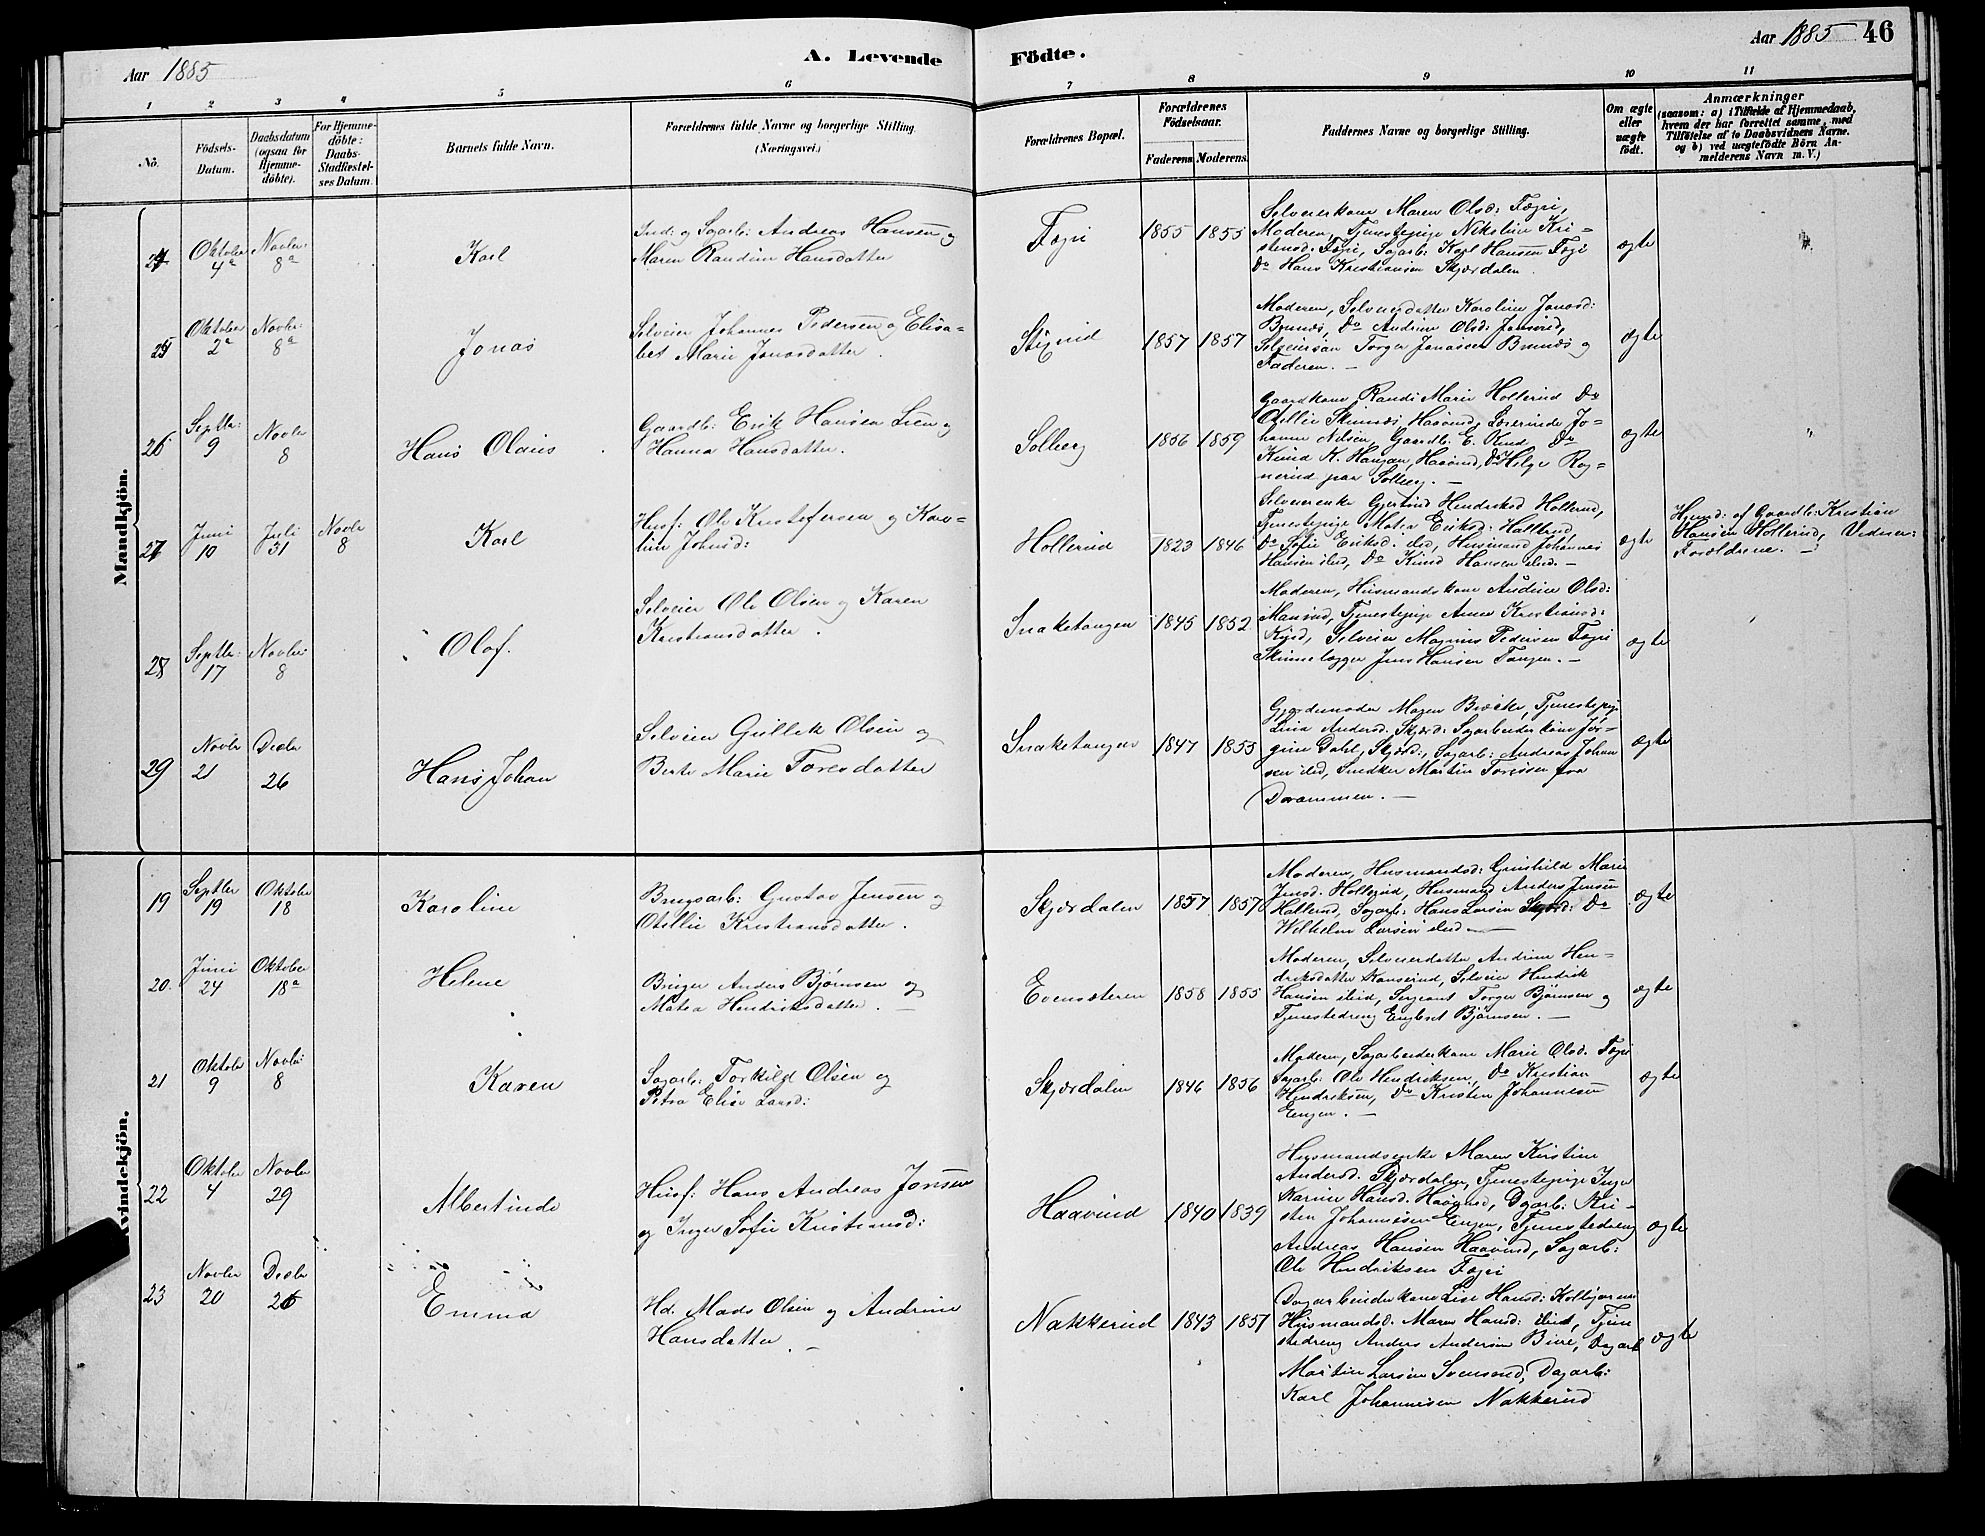 Aar 1885
A. Levende
Födte.
Aar 1885 46
1 2 3 4 5 6 7 8 9 10 11
No.
Födsels-
Datum.
Daabsdatum
(ogsaa for
Hjemme-
döbte).
For Hjemme-
döbte:
Daabs-
Stadfæstel-
ses Datum.
Barnets fulde Navn.
Forældrenes fulde Navne og borgerlige Stilling
(Næringsvei.)
Forældrenes Bopæl.
Forældrenes
Födselsaar.
Faderens. Moderens.
Faddernes Navne og borgerlige Stilling.
Om ægte
eller
uægte
födt.
Anmærkninger
(saasom: a) i Tilfælde af Hjemmedaab,
hvem der har forrettet samme, med
Tilföielse af to Daabsvidners Navne.
og b) ved uægtefödte Börn An-
melderens Navn m. V.)
Mandkjön.
24
Oktober
4a
Novbr:
8a
Karl
Ind: og Sagarb: Andreas Hansen og
Maren Randine Hansdatter
Fægri
1855 1855
Selveierkone Maren Olsd: Fægri,
Moderen, Tjenestepige Nikoline Kri-
stensd. Fægri, Sagarb: Karl Hansen Fægri
Do Hans Kristiansen Skjærdalen.
ægte
25
Oktober
2a
Novbr:
8a
Jonas
Selveier Johannes Pedersen og Elisa-
bet Marie Jonasdatter.
1857 1857
Moderen, Selveierdatter Karoline Jonasd:
Do Andrine Olsd:
Torger Jonasen
Faderen.
ægte
26
Septbr:
9
Novbr
8
Hans Olaus
Gaardb: Erik Hansen Lien og
Hanna Hansdatter.
Solberg
1856 1859
Gaardkone Randi Marie Hollerud Do
Lærerinde Jo-
hanne Nilsen, Gaardb: E.
Knud K. Haugan, Do Helge Rog-
nerud paa Solberg.
ægte
27
Juni
10
Juli
31
Novbr
8
Karl
Husf: Ole Kristofersen og Karo-
line Johnsd:
Hollerud
1823 1846
Selveierenke Gjertrud Hendriksd Hollerud,
Tjenestepige Matea Eriksd: Hollerud,
Do Sofie Eriksd. ibid, Husmand Johannes
Hansen ibid, Do Knud Hansen ibid.
ægte
Hjemd: af Gaardb: Kristian
Hansen Hollerud, Vidner:
Forældrene.
28
Septbr:
17
Novbr:
8
Olaf.
Selveier Ole Olsen og Karen
Kristiansdatter.
Snaketangen
1845 1852
Moderen, Husmandskone Andine Olsd:
Tjenestepige Anne Kristiansd:
Selveier Magnus Pedersen Fægri
Skinnelægger Jens Hansen Tangen.
ægte
29
Novbr
21
Decbr
26
Hans Johan
Selveier Gullik Olsen og
Berte Marie Toresdatter
Snaketangen
1847 1853
Gjordemoder Maren Tjenestepige
Lina Andersd. Skjærd: Sagarbeiderkone Jør-
gine Dahl, Skjærd:, Sagarb: Andreas Johan
sen ibid, Snedker Martin Toresen fra
Drammen.
ægte
Kvindekjön.
19
Septbr
19
Oktober
18
Karoline
Brugsarb: Gustav Jensen og
Otellie Kristiansdatter.
Skjærdalen
1857 1857
Moderen, Husmandsd: Gunhild Marie
Jensd. Hollerud, Husmand Anders Jensen
Hollerud, Sagarb: Hans Larsen Skjærd: Do
Wilhelm Larsen ibid
ægte
20.
Juni
24
Oktober
18a
Helene
Bruger Anders Bjørnsen og
Matea Hendriksdatter.
Evensæteren
1858 1855
Moderen, Selveierdatter Andrine Hen-
driksdatter Selveier Hendrik
Hansen ibid, Sergeant Torger Bjørnsen og
Tjenestedreng Engbret Bjørnsen.
ægte
21
Oktober
9
Novbr:
8
Karen
Sagarb: Torkild Olsen og
Petra Elise Larsd:
Skjærdalen
1846 1856
Moderen, Sagarbeiderkone Marie Olsd. Fægri
Sagarb: Ole Hendriksen, Do Kristian
Hendriksen, Do Kristen Johannesen
Engen.
ægte
22
Oktober
4
Novbr
29
Albertinde
Husf: Hans Andreas Jonsen
og Inger Sofie Kristiansd:
Haavrud
1840 1839
Husmandsenke Maren Kirstine
Andersd. Skjærdalen, Tjenestepige Inger
Karine Hansd. Dgarb: Kri-
sten Johannesen Engen, Tjenestedreng
Andreas Hansen Haavrud, Sagarb:
Ole Hendriksen Fægri
ægte
23
Novbr
20
Decbr
26
Emma
Hd. Mads Olsen og Andrine
Hansdatter.
Nakkerud
1843 1851
Dagarbeiderkone Lise Hansd:
Husmandsd. Maren Hansd: ibid, Tjene
stedreng Anders Andersen Dagarb
Martin Larsen Dagarb:
Karl Johannesen Nakkerud
ægte